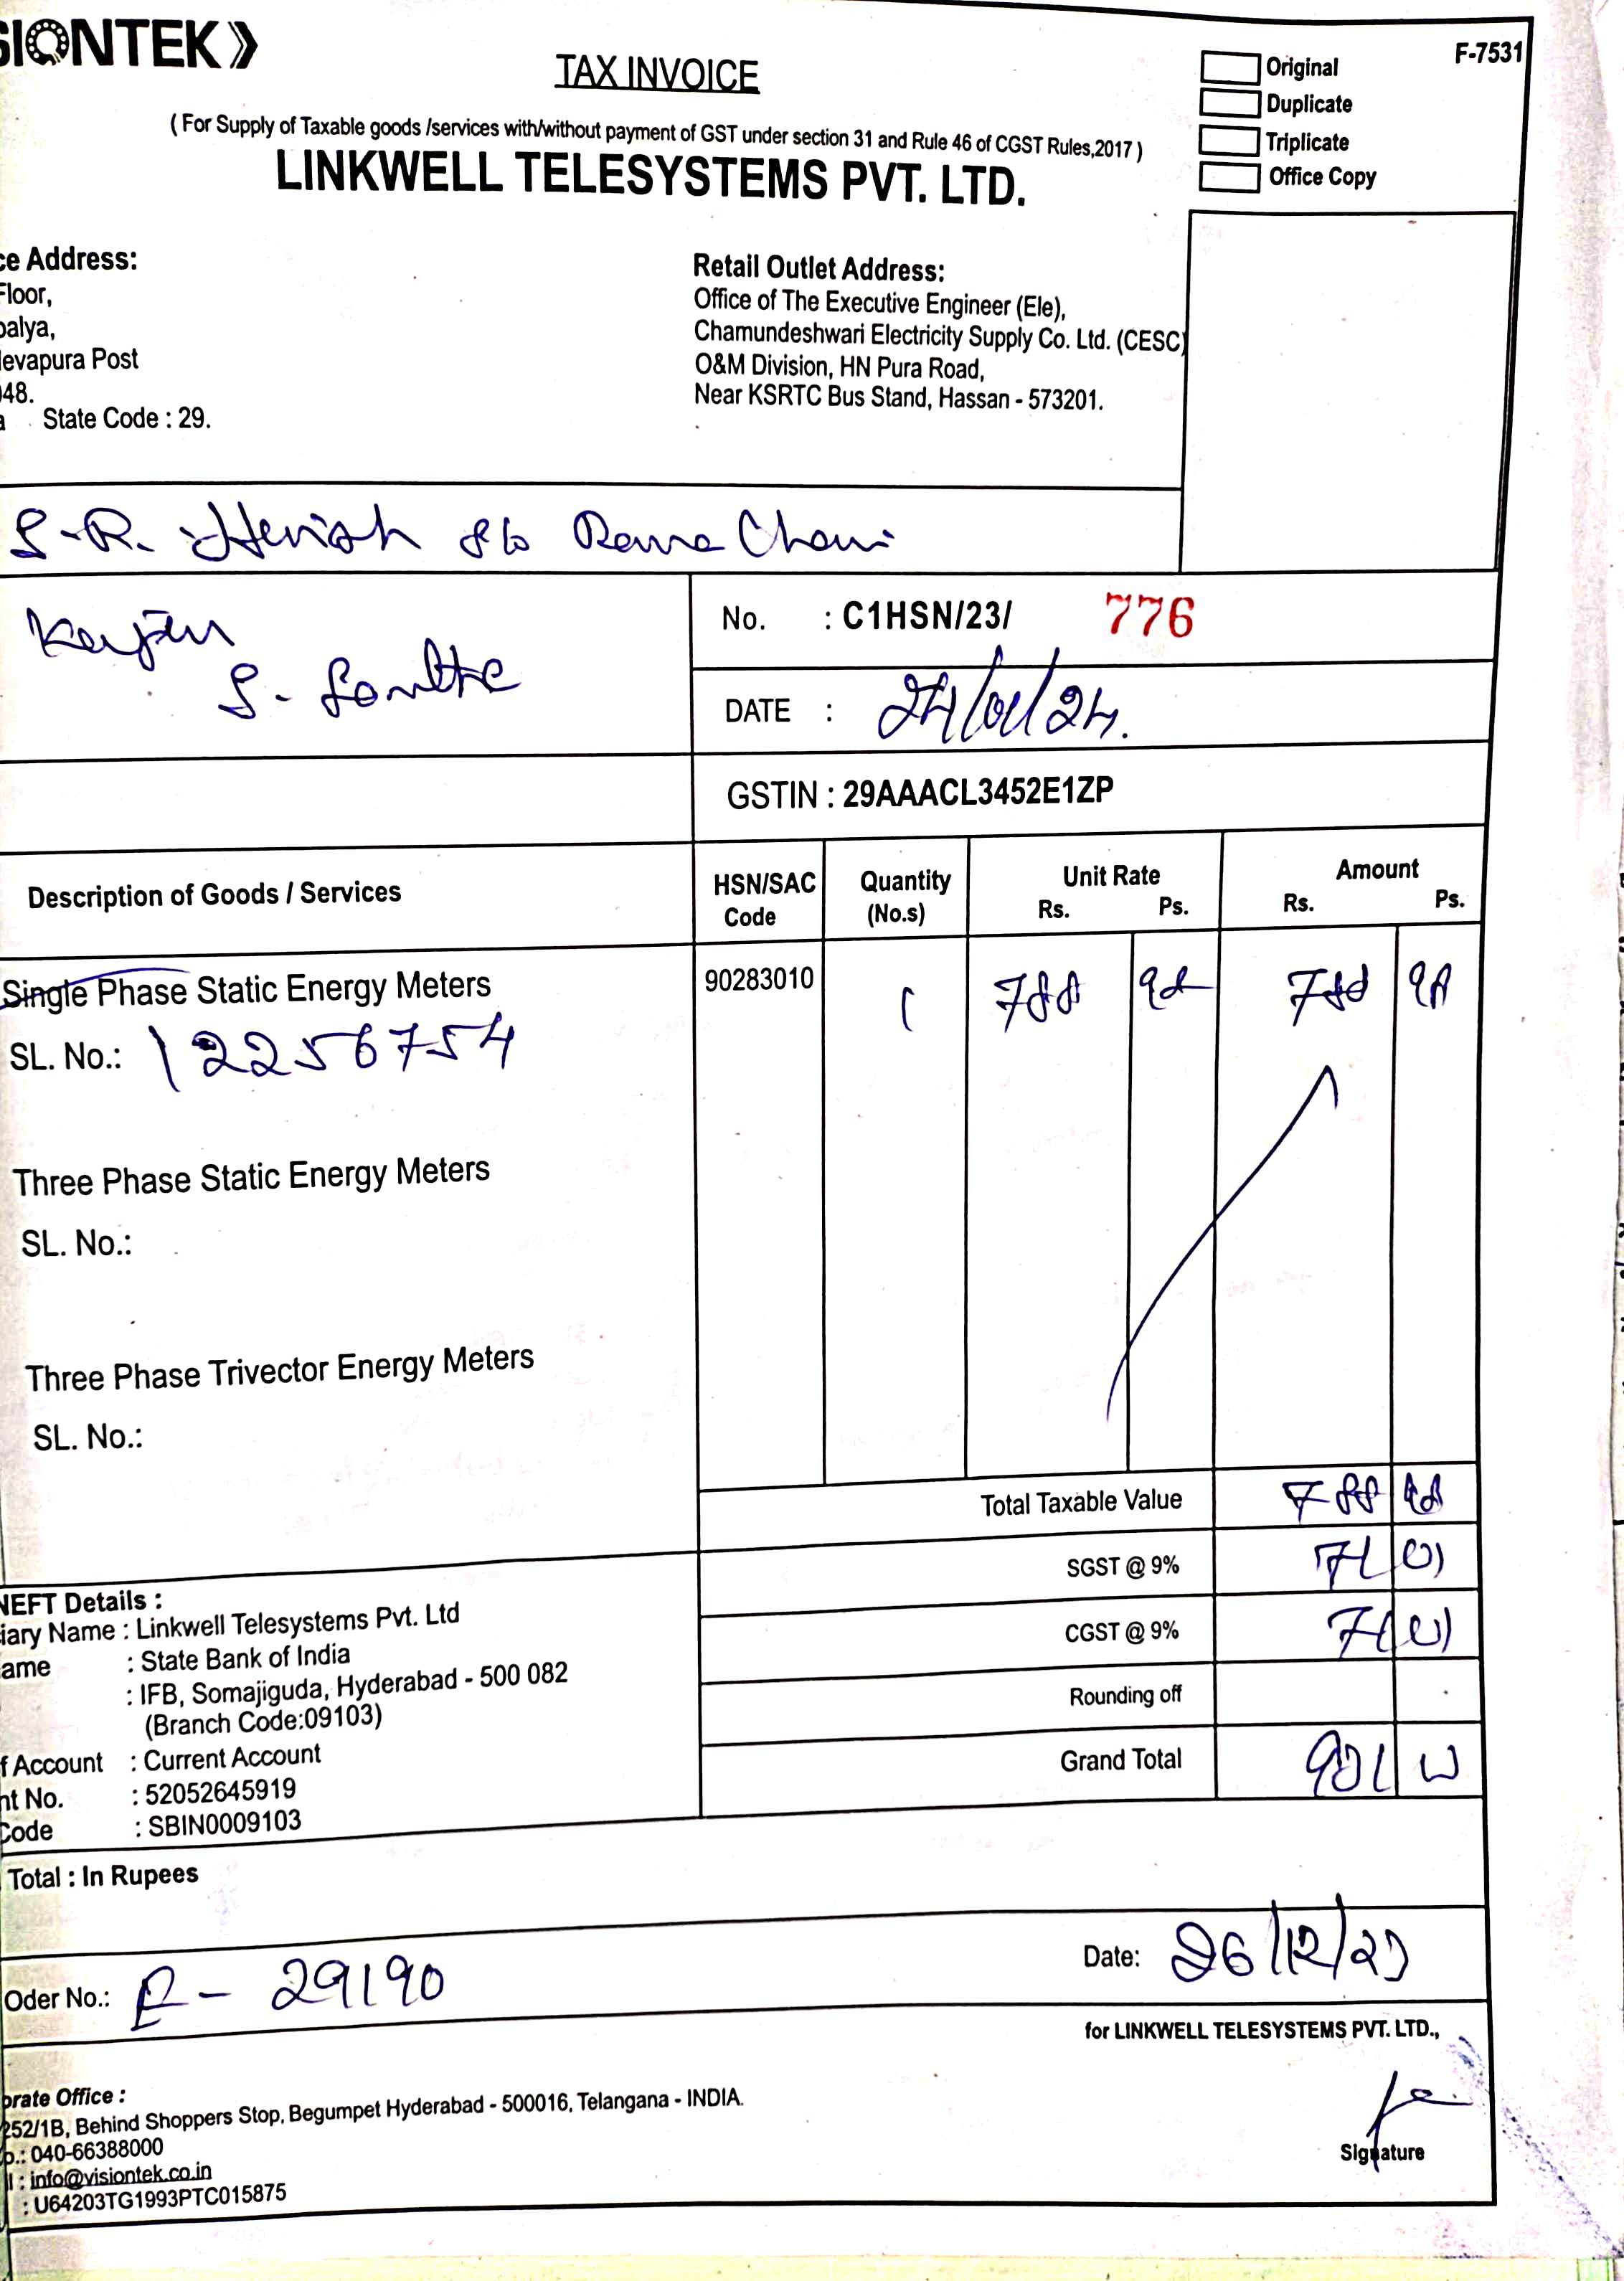 SIONTEK
TAX INVOICE
F-7531
Original
Duplicate
Triplicate
Office Copy
( For Supply of Taxable goods /services with/without payment of GST under section 31 and Rule 46 of CGST Rules,2017 )
LINKWELL TELESYSTEMS PVT. LTD.
ce Address:
Floor,
palya,
levapura Post
048.
a State Code : 29.
Retail Outlet Address:
Office of The Executive Engineer (Ele),
Chamundeshwari Electricity Supply Co. Ltd. (CESC)
O&M Division, HN Pura Road,
Near KSRTC Bus Stand, Hassan - 573201.
S-R. S/o Rama
No. : C1HSN/23/ 776
DATE : 24/01/24.
GSTIN : 29AAACL3452E1ZP
Description of Goods / Services
HSN/SAC Code
Quantity (No.s)
Unit Rate Rs. Ps.
Amount Rs. Ps.
Single Phase Static Energy Meters 90283010 1 788 98 788 98
SL. No.: 12256754
Three Phase Static Energy Meters
SL. No.:
Three Phase Trivector Energy Meters
SL. No.:
Total Taxable Value 788 98
SGST @ 9% 71 01
CGST @ 9% 71 01
Rounding off
Grand Total 931 00
NEFT Details :
iary Name : Linkwell Telesystems Pvt. Ltd
ame : State Bank of India
: IFB, Somajiguda, Hyderabad - 500 082
(Branch Code:09103)
f Account : Current Account
nt No. : 52052645919
Code : SBIN0009103
Total : In Rupees
Oder No.: R - 29190
Date: 26/12/23
for LINKWELL TELESYSTEMS PVT. LTD.,
Signature
orate Office :
252/1B, Behind Shoppers Stop, Begumpet Hyderabad - 500016, Telangana - INDIA.
o.: 040-66388000
l : info@visiontek.co.in
: U64203TG1993PTC015875